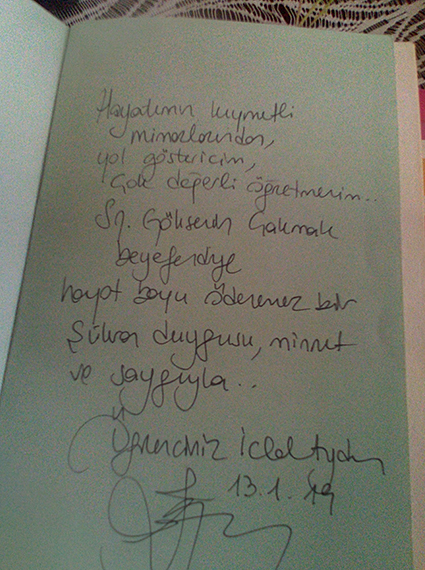 Hayatımın kıymetli
mimarlarından,
yol göstericim,
Çok değerli öğretmenim..
Sn. Gökserin Çakmak
beyefendiye
hayat boyu ödenemez bir
Şükran duygusu, minnet
ve saygıyla..
Öğrenciniz İclal Aydın
13.1.